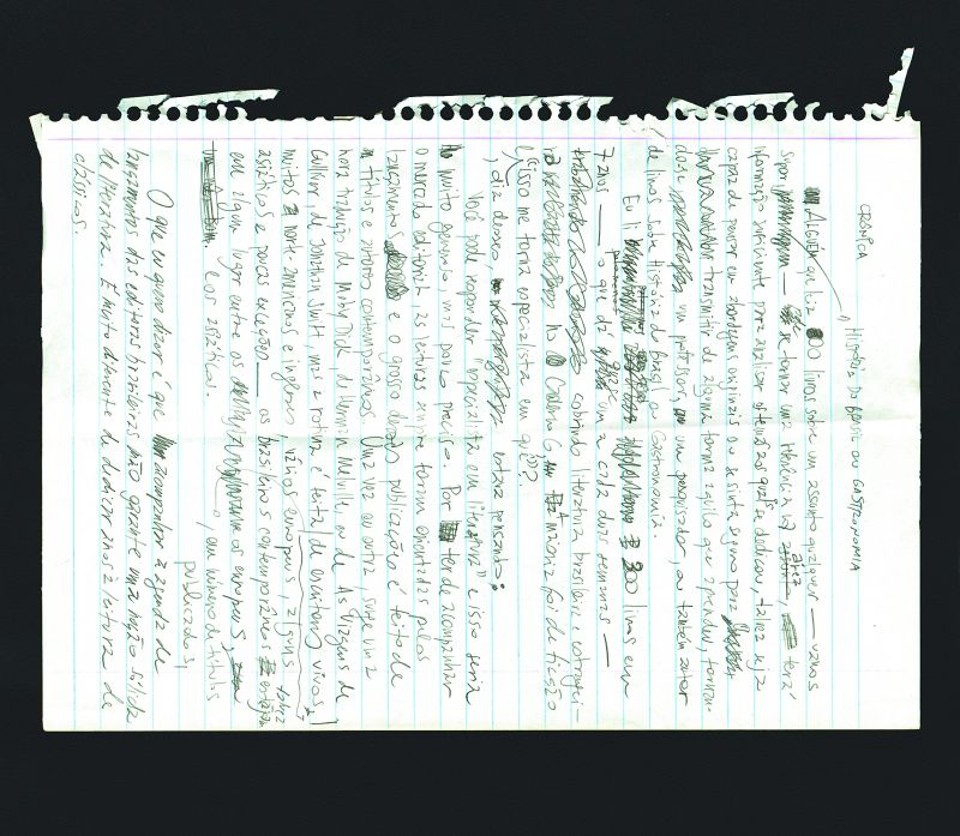 CRÔNICA
"HISTÓRIA DO BRASIL OU GASTRONOMIA
ALGUÉM que leia 300 livros sobre um assunto qualquer — vamos
supor — se tornar uma referência na área, terá
informação suficiente para avaliar os temas aos quais se dedicou, talvez seja
capaz de pensar em abordagens originais ou se sinta seguro para
transmitir de alguma forma aquilo que aprendeu, tornan-
do-se um professor, um pesquisador, ou também autor
de livros sobre História do Brasil ou Gastronomia.
Eu li 300 livros em
7 anos — o que dá quase um a cada duas semanas —
cobrindo literatura brasileira e estrangei-
ra no Caderno G, A maioria foi de ficção
e "isso me torna especialista em quê?"
, diz deusa, estava pensando:
Você pode responder "especialista em literatura" e isso seria
muito genérico mas pouco preciso. Por tender a acompanhar
o mercado editorial, as leituras sempre foram orientadas pelos
lançamentos e o grosso publicação é texto de
títulos e autores contemporâneos. Uma vez ou outra, surge uma
nova tradução de Moby Dick, de Herman Melville, ou de As Viagens de
Gulliver, de Jonathan Swift, mas a rotina é feita de escritores vivos,
muitos norte-americanos e ingleses, vários europeus, alguns
asiáticos e poucas exceções — os brasileiros contemporâneos talvez estejam
em algum lugar entre os europeus,
e os asiáticos. , em número de títulos
publicados,
O que eu quero dizer é que acompanhar a agenda de
lançamentos das editoras brasileiras não garante uma noção sólida
de literatura. É muito diferente de dedicar anos à leitura de
clássicos.